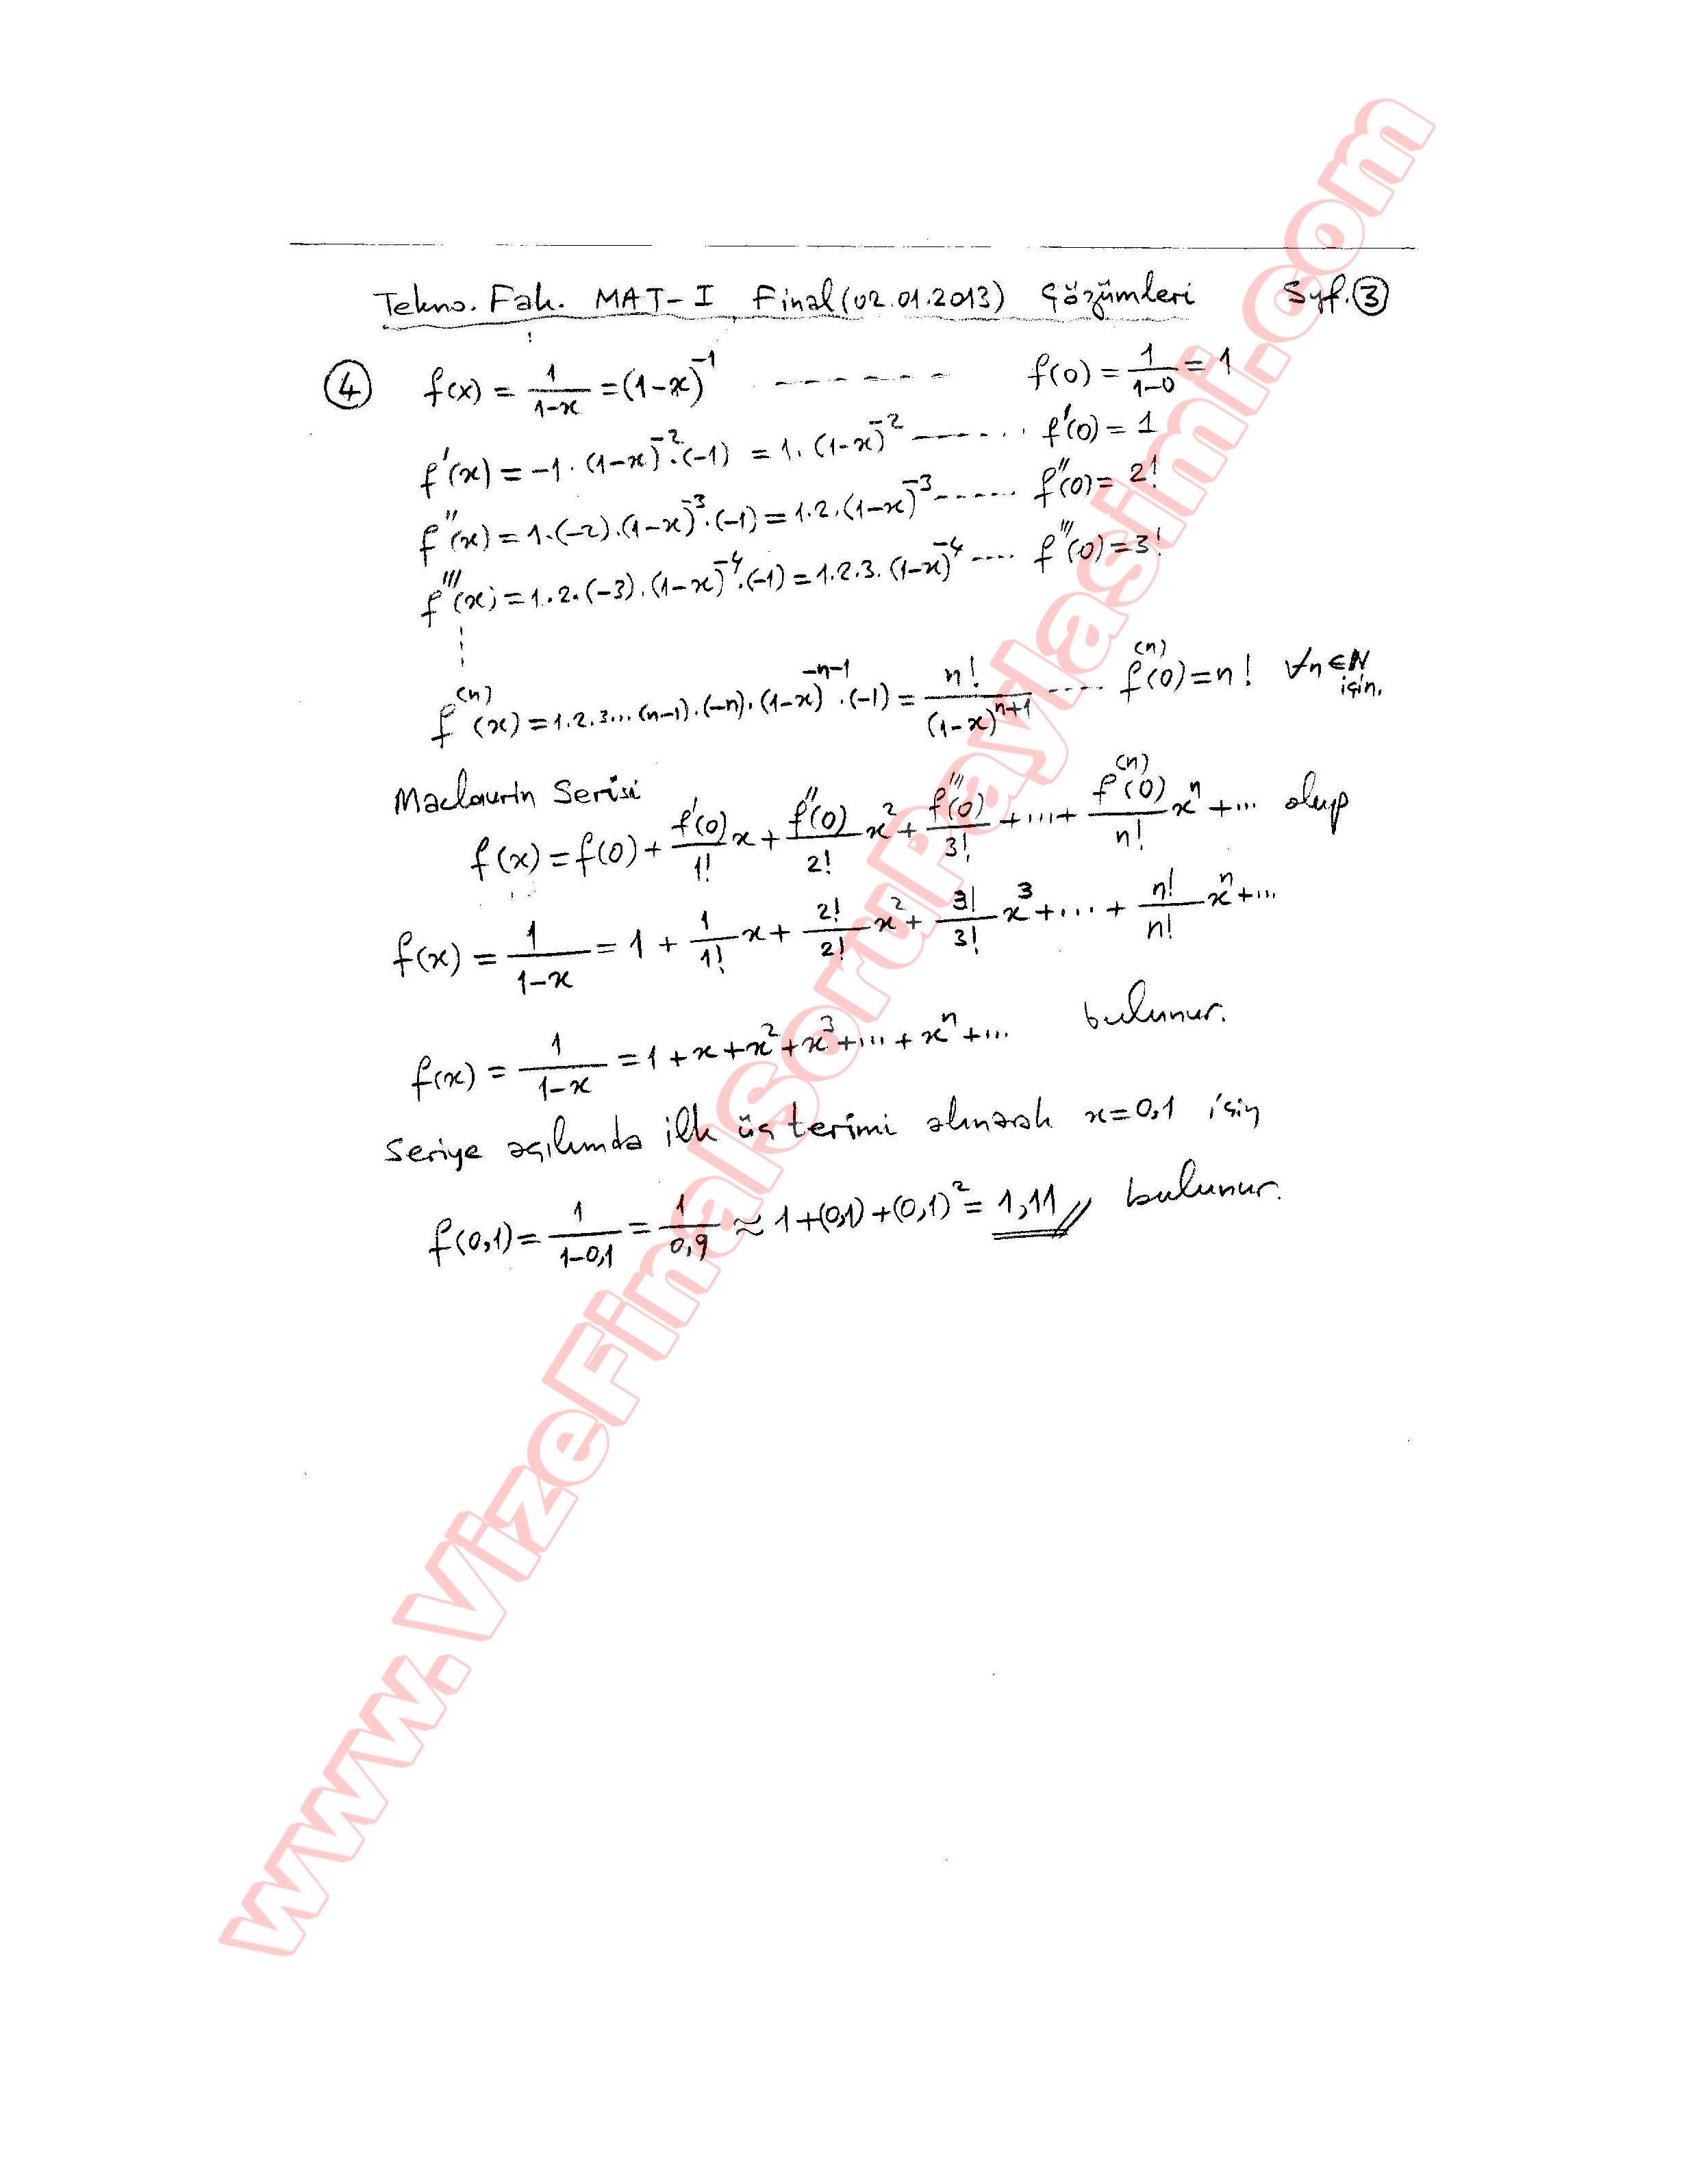 Tekno. Fak. MAT-I Final (02.01.2013) Çözümleri Syf. 3
4 f(x) = 1/(1-x) = (1-x)^-1 ------- f(0) = 1/(1-0) = 1
f'(x) = -1.(1-x)^-2.(-1) = 1.(1-x)^-2 ------ f'(0) = 1
f''(x) = 1.(-2).(1-x)^-3.(-1) = 1.2.(1-x)^-3 ------ f''(0) = 2!
f'''(x) = 1.2.(-3).(1-x)^-4.(-1) = 1.2.3.(1-x)^-4 ---- f'''(0) = 3!
f^(n)(x) = 1.2.3...(n-1).(-n).(1-x)^-n-1.(-1) = n!/(1-x)^n+1 ---- f^(n)(0) = n! ∀n∈N için.
Maclaurin Serisi
f(x) = f(0) + f'(0)/1! x + f''(0)/2! x^2 + f'''(0)/3! + ... + f^(n)(0)/n! x^n + ... olup
f(x) = 1/(1-x) = 1 + 1/1! x + 2!/2! x^2 + 3!/3! x^3 + ... + n!/n! x^n + ...
f(x) = 1/(1-x) = 1 + x + x^2 + x^3 + ... + x^n + ... bulunur.
Seriye açılımda ilk üç terimi alınarak x=0,1 için
f(0,1) = 1/(1-0,1) = 1/0,9 ≈ 1+(0,1)+(0,1)^2 = 1,11 bulunur.
www.VizeFinalSoruPaylasimi.com